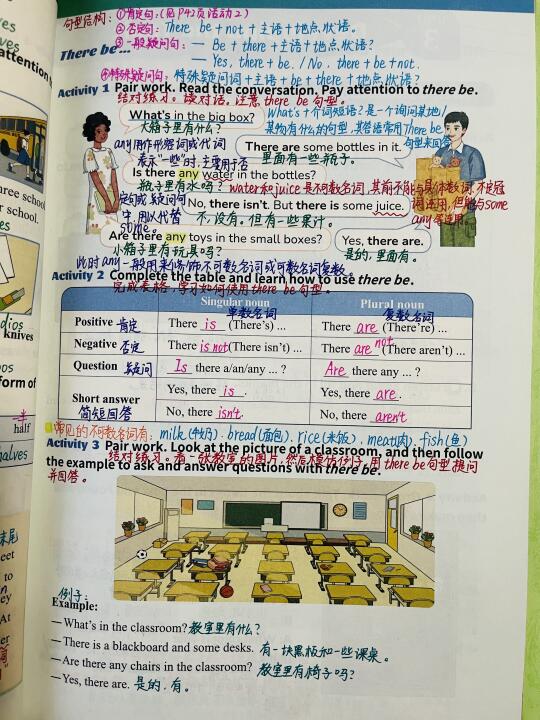 句型结构：①肯定句：(见P42页活动2)
②否定句：There be+not+主语+地点状语。
③一般疑问句：— Be+there+主语+地点状语？
— Yes, there+be. / No, there+be+not.
④特殊疑问句：特殊疑问词+主语+be+there+地点状语？
There be...
Activity 1 Pair work. Read the conversation. Pay attention to there be.
结对练习。读对话，注意there be句型。
What's in the big box?
大箱子里有什么？
What's+介词短语？是一个询问某地/
某物有什么的句型，其答语常用There be
句型来回答
any用作形容词或代词
表示"一些"时，主要用于否
There are some bottles in it.
里面有一些瓶子。
Is there any water in the bottles?
瓶子里有水吗？
water和juice是不可数名词，其前不能与具体数词、不定冠
词连用，但能与some
any等连用
定句或疑问句
中，用以代替
some。
No, there isn't. But there is some juice.
不，没有。但有一些果汁。
Are there any toys in the small boxes?
小箱子里有玩具吗？
Yes, there are.
是的，里面有。
此时any一般用来修饰不可数名词或可数名词复数。
Activity 2 Complete the table and learn how to use there be.
完成表格，学习如何使用there be句型。
Singular noun 单数名词
Plural noun 复数名词
Positive 肯定
There is (There's) ...
There are (There're) ...
Negative 否定
There is not (There isn't) ...
There are not (There aren't) ...
Question 疑问
Is there a/an/any ... ?
Are there any ... ?
Short answer 简短回答
Yes, there is.
Yes, there are.
No, there isn't.
No, there aren't
常见的不可数名词有：milk(牛奶)、bread(面包)、rice(米饭)、meat(肉)、fish(鱼)
Activity 3 Pair work. Look at the picture of a classroom, and then follow
the example to ask and answer questions with there be.
结对练习。看一张教室的图片，然后模仿例子，用there be句型提问
并回答。
例子：
Example:
— What's in the classroom? 教室里有什么？
— There is a blackboard and some desks. 有一块黑板和一些课桌。
— Are there any chairs in the classroom? 教室里有椅子吗？
— Yes, there are. 是的，有。
ree school
r school.
dios
knives
form of
half
halves
末尾
eet
to
ey
At
er